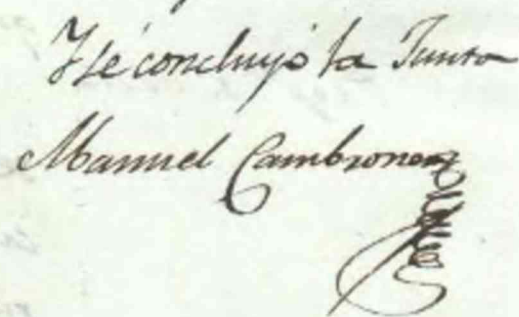 Y se concluyó la Junta
Manuel Cambronero